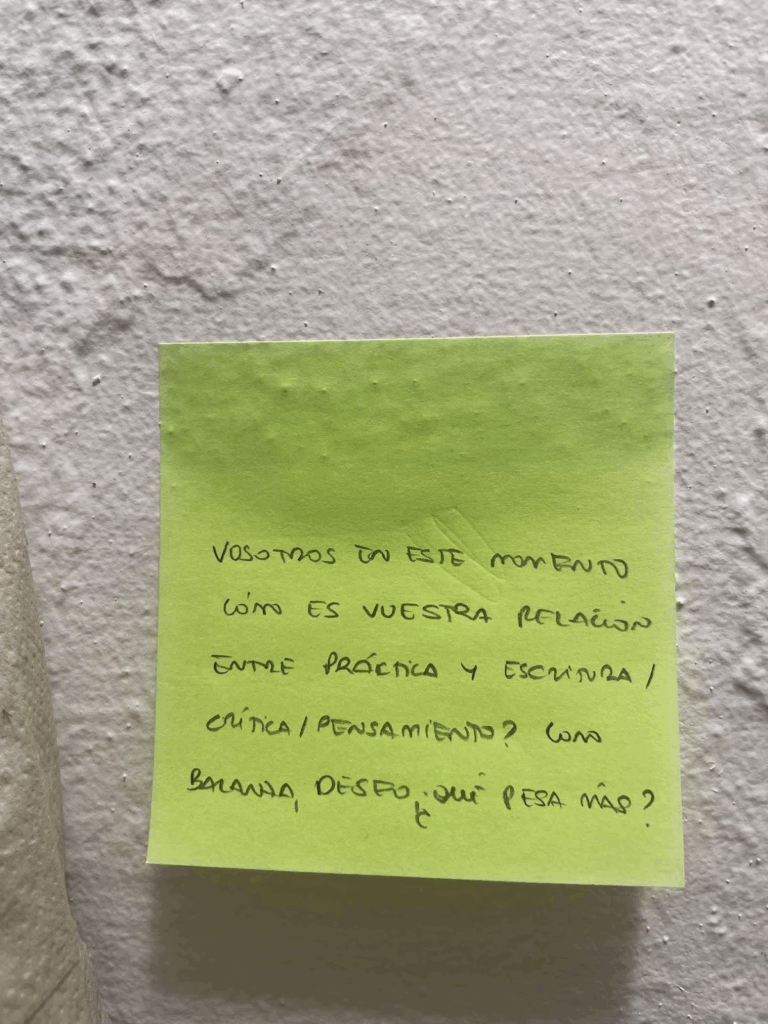 VOSOTROS EN ESTE MOMENTO
CÓMO ES VUESTRA RELACIÓN
ENTRE PRÁCTICA Y ESCRITURA/
CRÍTICA/PENSAMIENTO? COMO
BALANZA, DESEO, ¿QUÉ PESA MÁS?